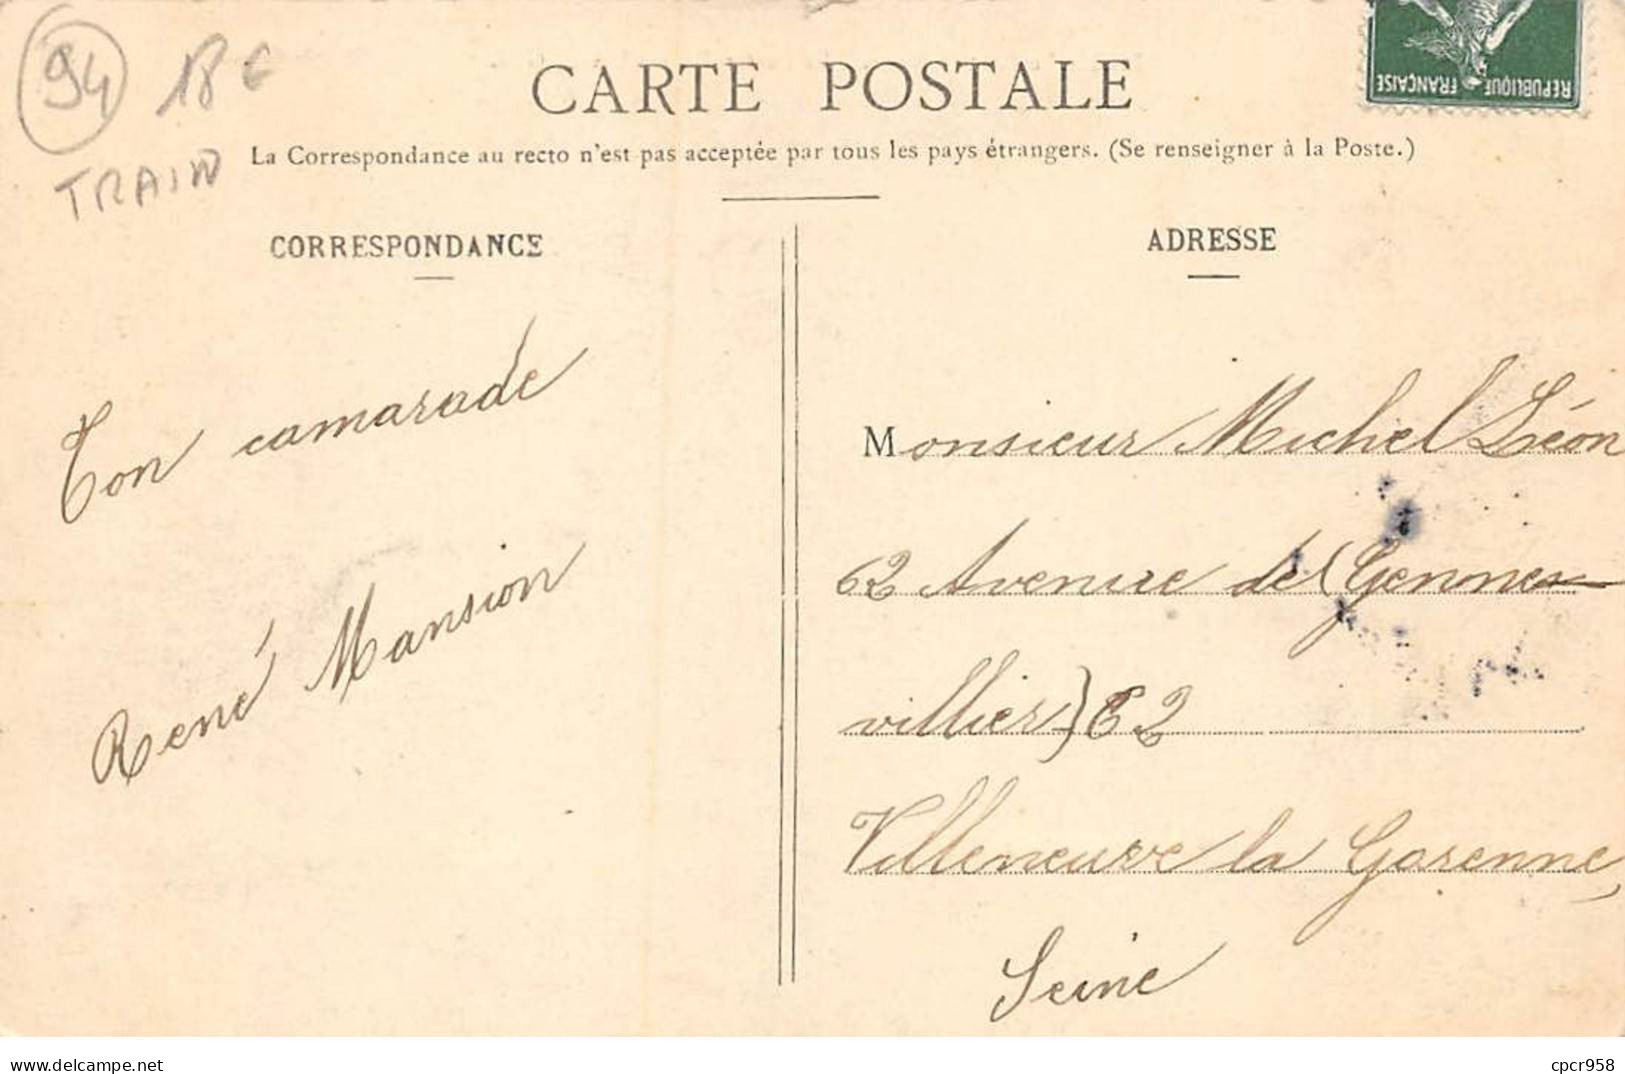 94 18 €
TRAIN
RÉPUBLIQUE FRANÇAISE
CARTE POSTALE
La Correspondance au recto n'est pas acceptée par tous les pays étrangers. (Se renseigner à la Poste.)
CORRESPONDANCE
Ton camarade
René Mansion
ADRESSE
Monsieur Michel Léon
62 Avenue de (Genne-
villiers) 62
Villeneuve la Garenne,
Seine
delcampe.net
cpcr958